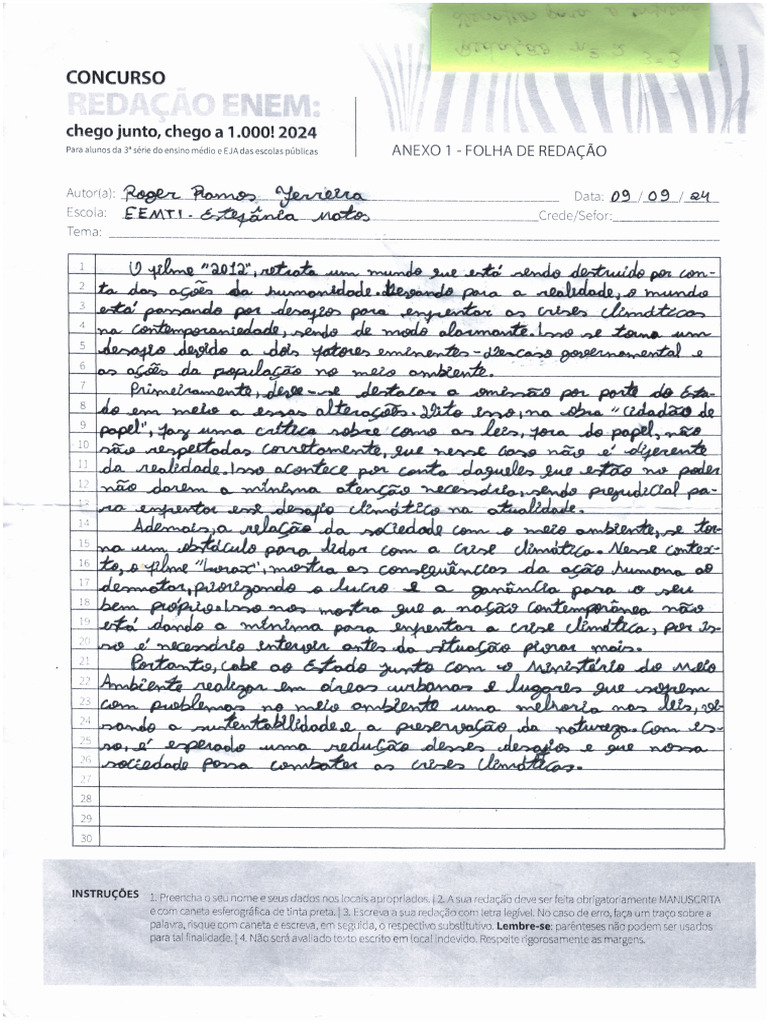 CONCURSO
REDAÇÃO ENEM:
chego junto, chego a 1.000! 2024
Para alunos da 3ª série do ensino médio e EJA das escolas públicas
ANEXO 1 - FOLHA DE REDAÇÃO
Autor(a): Roger Ramos Ferreira Data: 09/09/24
Escola: EEMTI - Estefânia Matos Crede/Sefor:
Tema:
1 O filme "2012", retrata um mundo que está sendo destruido por con-
2 ta das ações da humanidade. Levando para a realidade, o mundo
3 está passando por desafios para enfrentar as crises climáticas
4 na contemporaniedade, sendo de modo alarmante. Isso se torna um
5 desafio devido a dois fatores eminentes - descaso governamental e
6 as ações da população no meio ambiente.
7 Primeiramente, deve-se destacar a omissão por parte do Esta-
8 do em meio a essas alterações. Dito isso, na obra "Cidadão de
9 papel", faz uma crítica sobre como as leis, fora do papel, não
10 são respeitadas corretamente, que nesse caso não é diferente
11 da realidade. Isso acontece por conta daqueles que estão no poder
12 não darem a mínima atenção necessária, sendo prejudicial pa-
13 ra enfrentar esse desafio climático na atualidade.
14 Ademais, a relação da sociedade com o meio ambiente, se tor-
15 na um obstáculo para lidar com a crise climática. Nesse contex-
16 to, o filme "Lorax", mostra as consequências da ação humana ao
17 desmatar, priorizando o lucro e a ganância para o seu
18 bem própio. Isso nos mostra que a nação contemporânea não
19 está dando a mínima para enfrentar a crise climática, por is-
20 so é necessário intervir antes da situação piorar mais.
21 Portanto, cabe ao Estado junto com o Ministério do Meio
22 Ambiente realizar em áreas urbanas e lugares que sofrem
23 com problemas no meio ambiente uma melhoria nas leis, vi-
24 sando a sustentabilidade e a preservação da natureza. Com es-
25 so, é esperado uma redução desses desafios e que nossa
26 sociedade possa combater as crises climáticas.
27
28
29
30
INSTRUÇÕES 1. Preencha o seu nome e seus dados nos locais apropriados. | 2. A sua redação deve ser feita obrigatoriamente MANUSCRITA
e com caneta esferográfica de tinta preta. | 3. Escreva a sua redação com letra legível. No caso de erro, faça um traço sobre a
palavra, risque com caneta e escreva, em seguida, o respectivo substitutivo. Lembre-se: parênteses não podem ser usados
para tal finalidade. | 4. Não será avaliado texto escrito em local indevido. Respeite rigorosamente as margens.